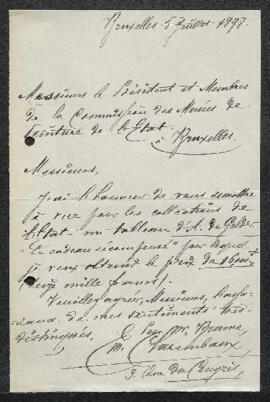 Bruxelles 5 Juillet 1898.
Messieurs le Président et Membres
de la Commission des Musées de
Peinture de l'Etat.
à Bruxelles.
Messieurs,
J'ai l'honneur de vous soumettre
à vue pour les collections de
l'Etat un tableau d'A. de Gelder
"Le cadeau" pour lequel
je veux obtenir le prix de
mille francs.
Veuillez agréer, Messieurs, l'assu-
rance de mes sentiments très
distingués,
E. Mr.
3. Rue du Congrès,